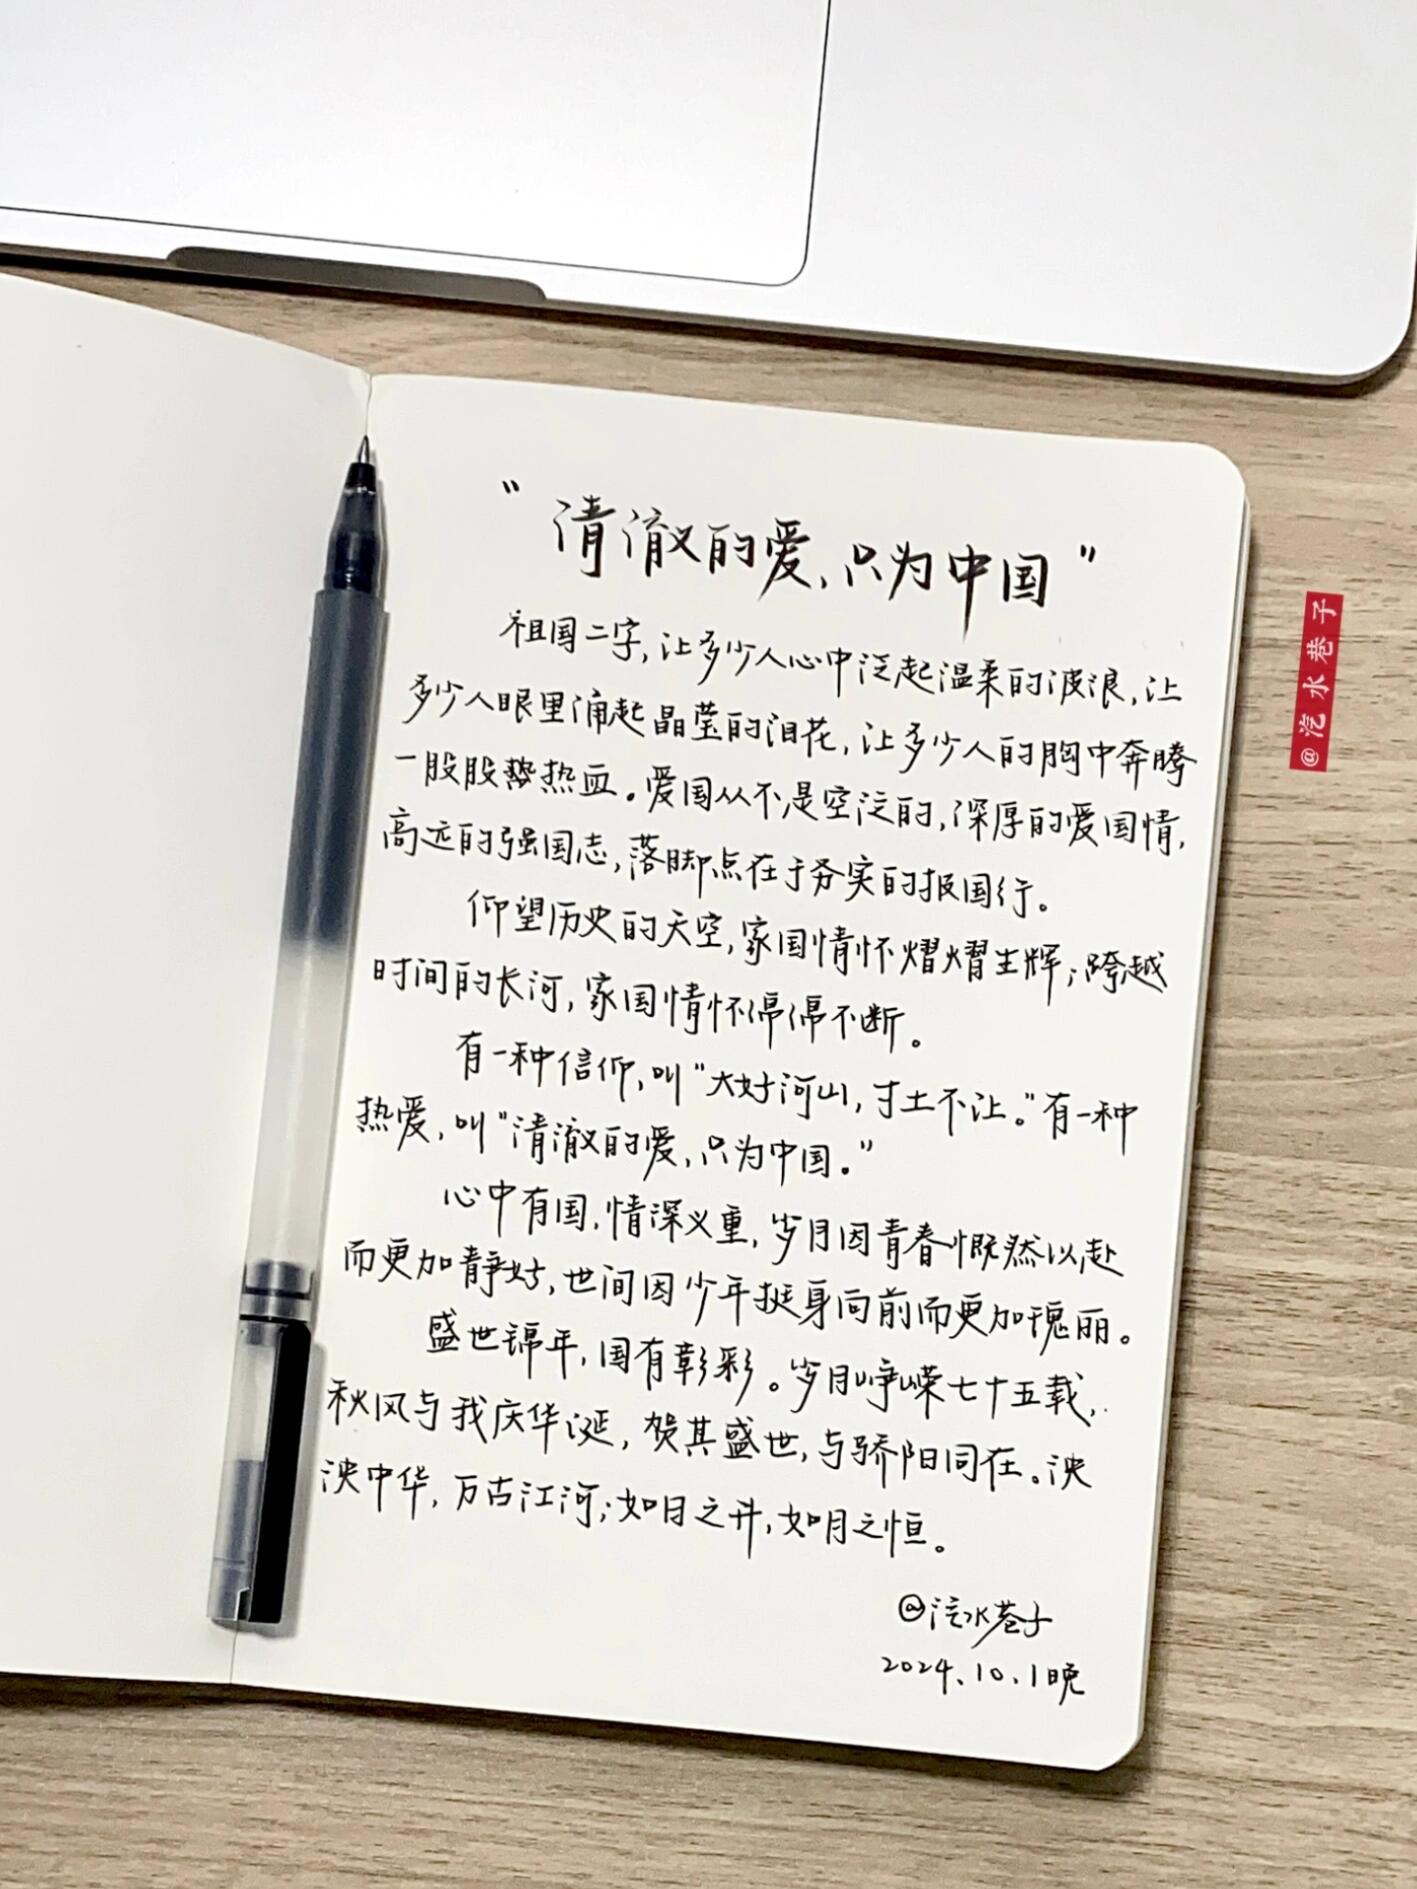 “清澈的爱,只为中国”
祖国二字,让多少人心中泛起温柔的波浪,让
多少人眼里涌起晶莹的泪花,让多少人的胸中奔腾
一股股热血。爱国从不是空泛的,深厚的爱国情,
高远的强国志,落脚点在于夯实的报国行。
仰望历史的天空,家国情怀熠熠生辉;跨越
时间的长河,家国情怀绵绵不断。
有一种信仰,叫“大好河山,寸土不让。”有一种
热爱,叫“清澈的爱,只为中国。”
心中有国,情深义重,岁月因青春慨然以赴
而更加静好,世间因少年挺身向前而更加瑰丽。
盛世锦年,国有彰彩。岁月峥嵘七十五载,
秋风与我庆华诞,贺其盛世,与骄阳同在。泱
泱中华,万古江河;如日之升,如月之恒。
@汽水巷子
2024.10.1晚
@汽水巷子